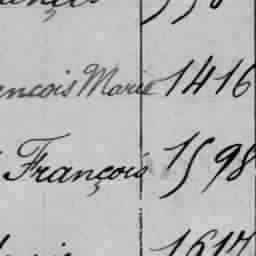 ncois Marie 1416
François 1598
1617